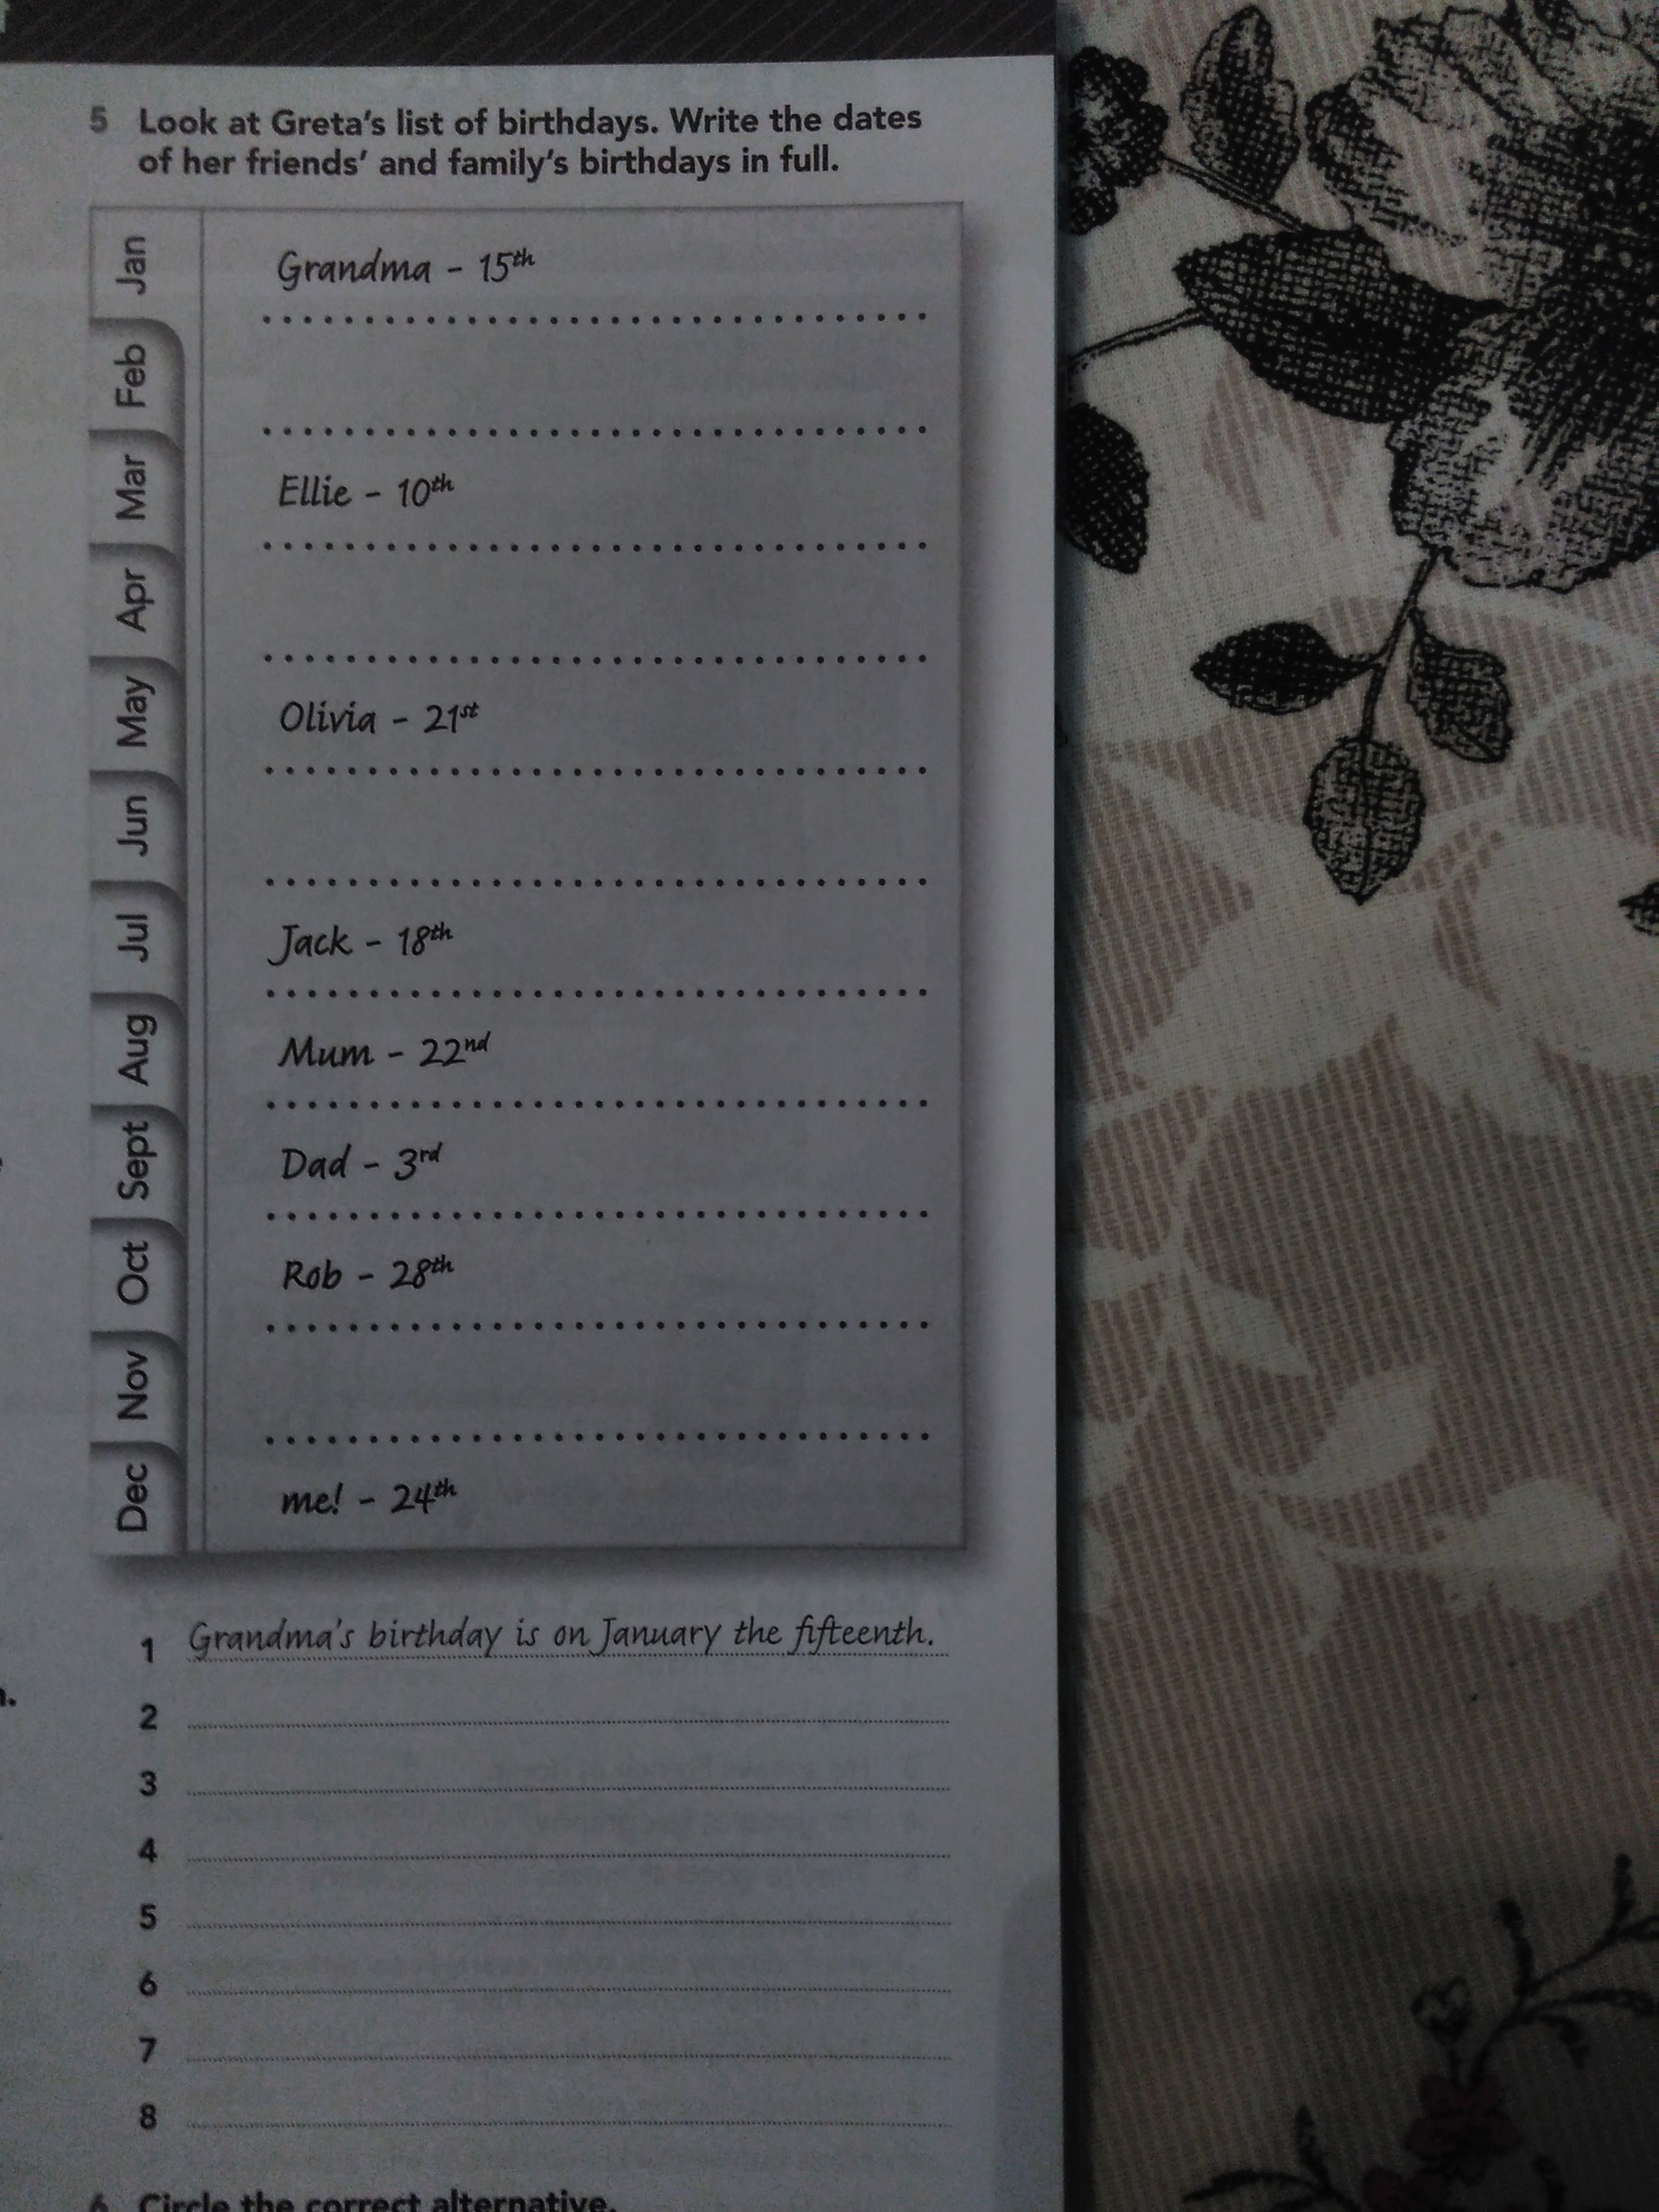 5 Look at Greta's list of birthdays. Write the dates
of her friends' and family's birthdays in full.
Jan
Grandma - 15th
Feb
Mar
Ellie - 10th
Apr
May
Olivia - 21st
Jun
Jul
Jack - 18th
Aug
Mum - 22nd
Sept
Dad - 3rd
Oct
Rob - 28th
Nov
Dec
me! - 24th
1 Grandma's birthday is on January the fifteenth.
2
3
4
5
6
7
8
6 Circle the correct alternative.